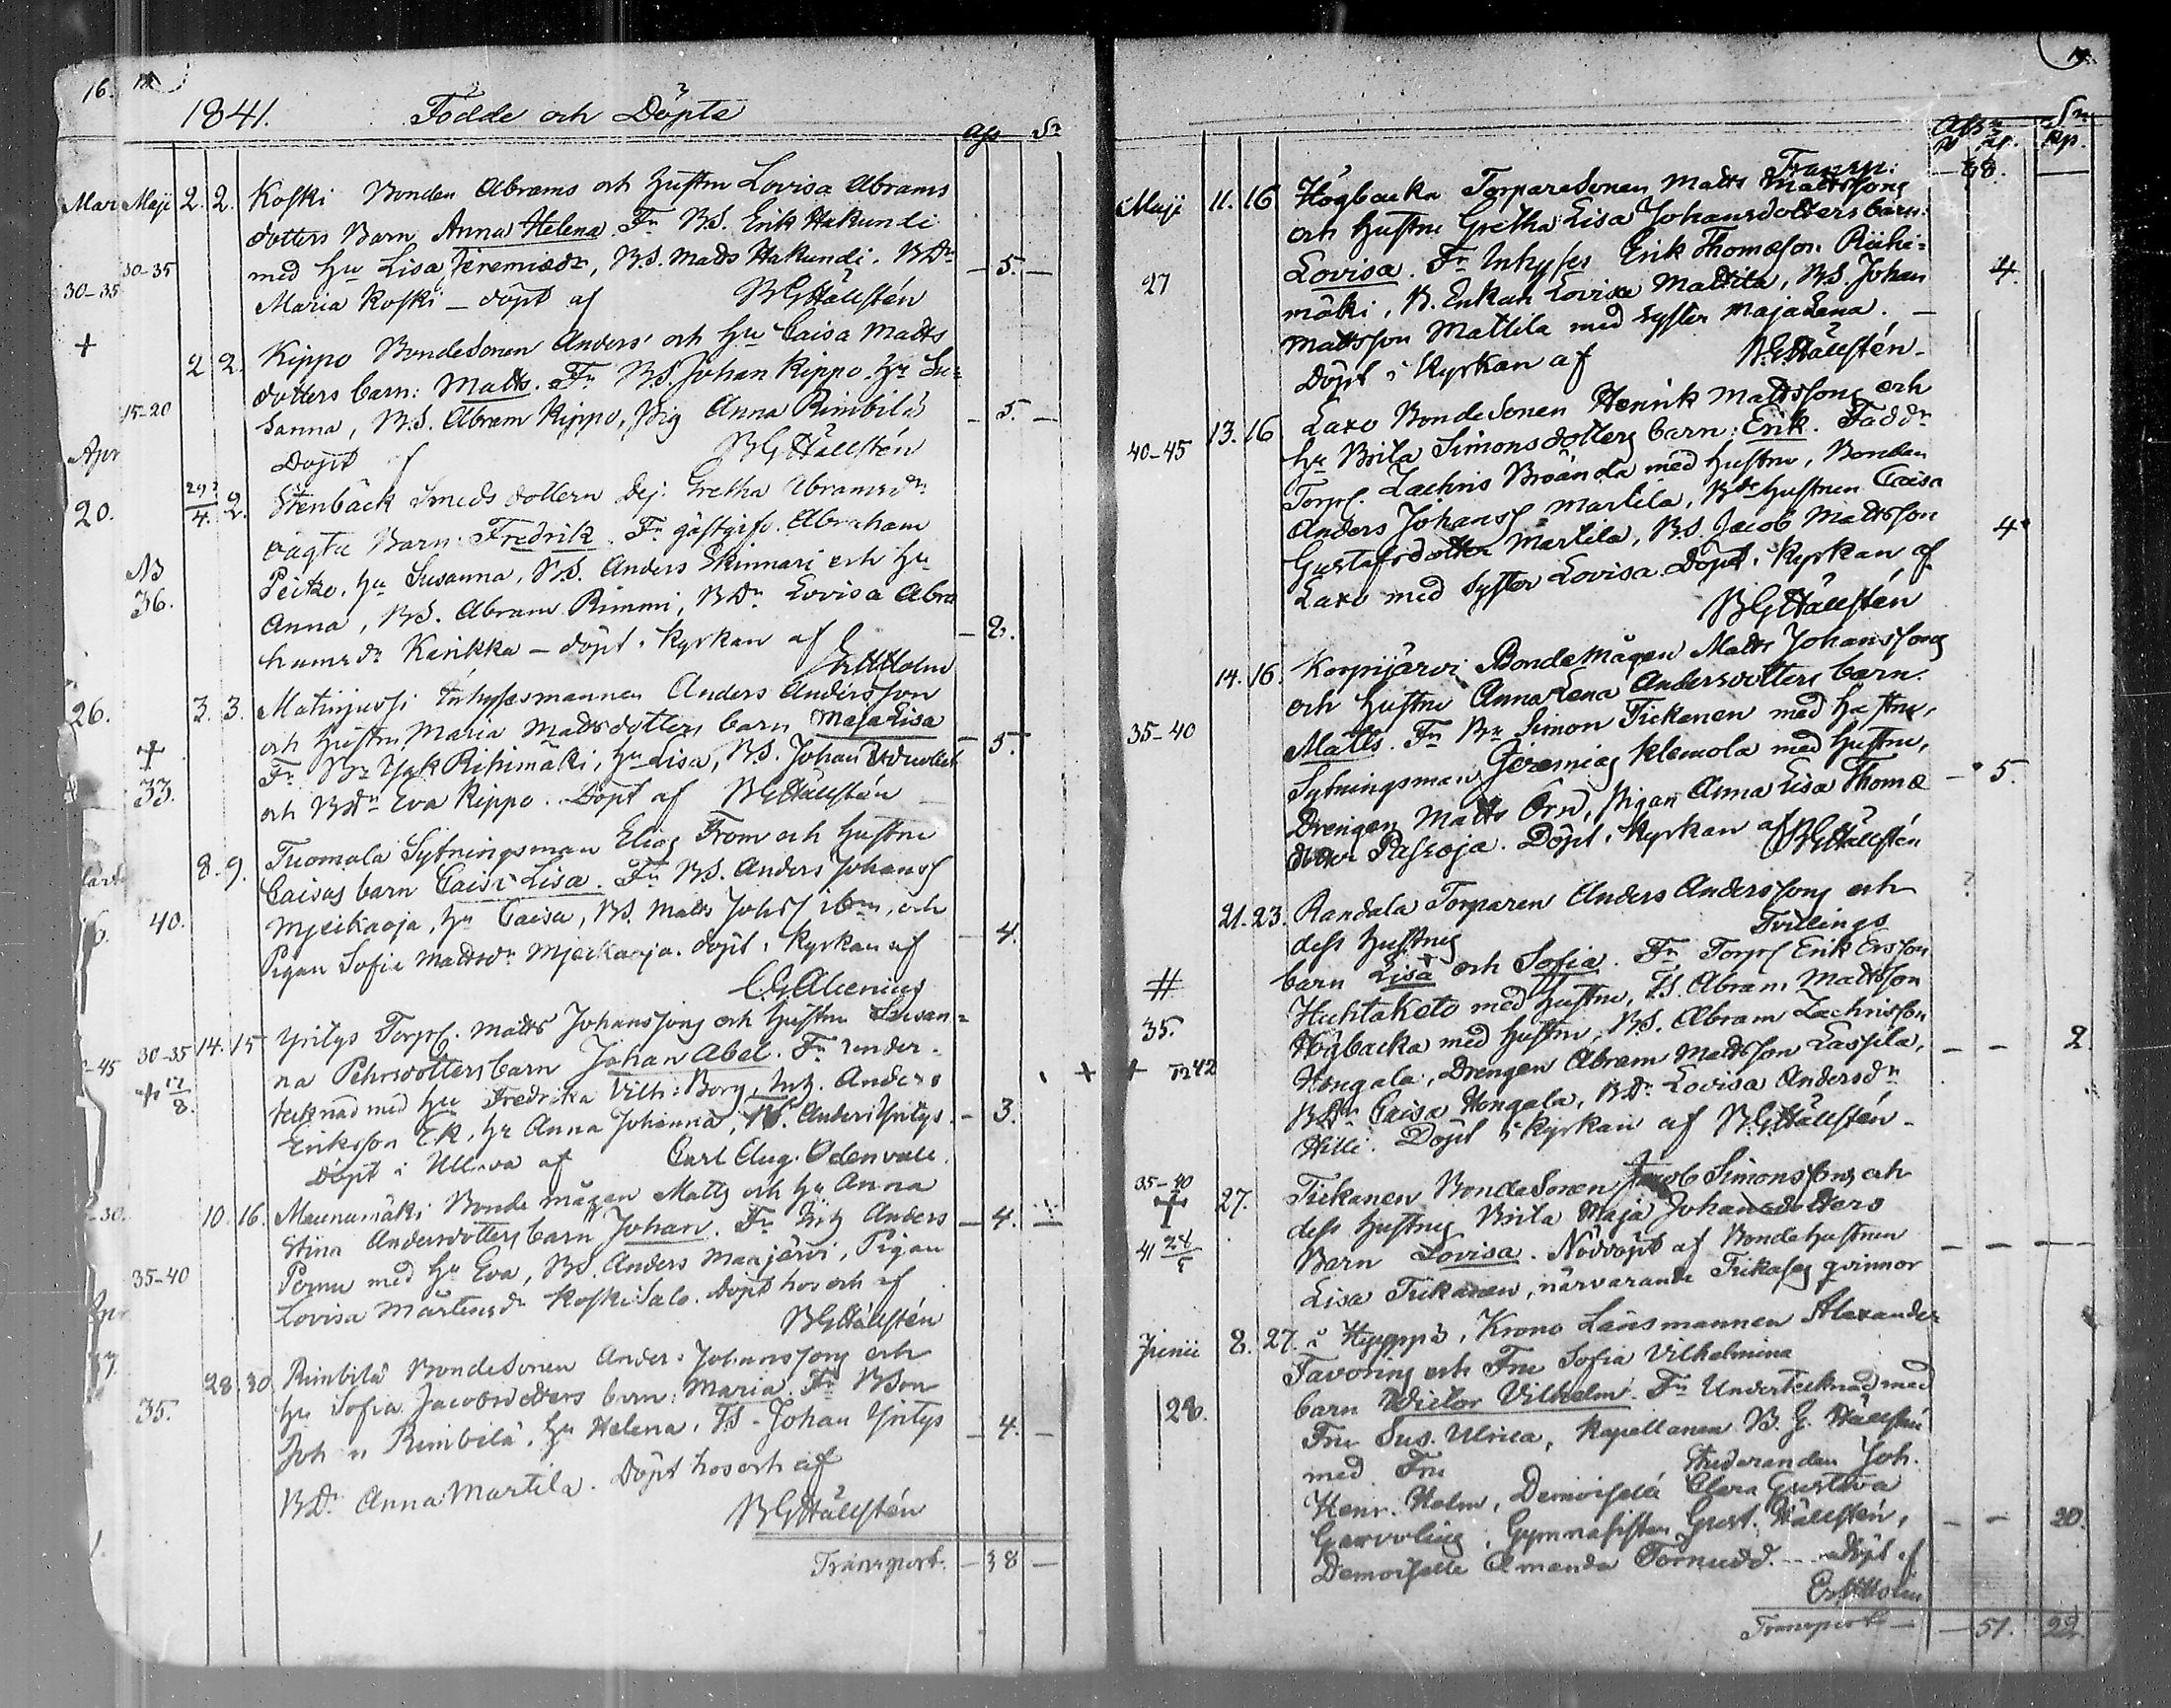 16.
1841. Födde och Döpte
Ass Sr
Maji 2. 2. Koski Bonden Abrams och Hustru Lovisa Abrams
dotters Barn Anna Helena. Fr BS. Erik Hakundi
30-35 med Hu Lisa Jeremiædr, B.S. Mads Hakundi. BDr – 5. –
Maria Koski – döpt af BGHällstén
2 2. Kippo BondeSonen Anders och Hu Caisa Matts
dotters barn: Matts. Fr BS. Johan Kippo Hu Su=
15-20 sanna, B.S. Abram Kippo, Pig Anna Rimbilä – 5. –
Döpt af BGHällstén
29?/4. 2. Stenbäck Smedsdottern Dej. Gretha Abramsdr
oägta Barn: Fredrik. Fr gästgifv. Abraham
NB Peitzo, Hu Susanna, B.S. Anders Skinnari och Hu
36. Anna, BS. Abram Rimmi, BDr Lovisa Abra
hamsdr Karikka – döpt i Kyrkan af – 2.
Er. H. Holm
3. 3. Matinjussi Inhysesmannen Anders Andersson
och Hustru Maria Mattsdotters barn Maja Lisa
+ Fr Br Isak Rihimäki, Hu Lisa, BS. Johan – 5.
33. och BDr Eva Kippo. Döpt af BGHällstén
8. 9. Tuomala Sytningsman Elias From och Hustru
Caisas barn Caisa Lisa. Fr BS. Anders Johanss
40. Mjeikaoja, Hu Caisa, BS. Matts Johss ibm, och
Pigan Sofia Mattsdr Mjeikaoja. döpt i Kyrkan af – 4.
C.G. Alcenius
30-35 14. 15 Yritys Torps. Matts Johanssons och Hustru Susan=
+ 17/8. na Pehrsdotters barn Johan Abel. Fr under-
tecknad med Hu Fredrika Vilh: Borg, Inh. Anders
Eriksson Ek, Hu Anna Johanna, BS. Anders Yritys – 3.
Döpt i Ullava af Carl Aug. Odenvall.
10. 16. Maunumäki Bonde mågen Matts och Hu Anna
Stina Andersdotters barn Johan. Fr Inh Anders – 4. –
35-40 Pernu med Hu Eva, BS. Anders Maajärvi, Pigan
Lovisa Mårtensdr KoskiSalo. döpt hos och af
BGHällstén
28. 30 Rimbilä BondeSonen Anders Johanssons och
Hu Sofia Jacobsdotters barn: Maria. Fr BSon
35. Joh n Rimbilä, Hu Helena, TS. Johan Yritys – 4. –
BDr Anna Martila. Döpt hos och af
BGHällstén
Transport. – 38 –
Assr Sr
R Kp. Kp.
Transp: – 38. –
Maji 11. 16 Högbacka TorpareSonen Matts Mattssons
och Hustru Gretha Lisa Johansdotters barn:
27 Lovisa. Fr Inhyses Erik Thomæson Riihi= 4.
mäki, B. Enkan Lovisa Mattila, BS. Johan
Mattsson Mattila med syster Maja Lena. –
Döpt i Kyrkan af BGHällstén
13. 16. Laxo BondeSonen Henrik Mattssons och
40-45 Hu Brita Simonsdotters barn: Erik. Faddr
Torps. Zachris Brända med Hustru, Bonden
Anders Johanss Martila, BdeHustrun Caisa
Gustafsdotter Martila, BS. Jacob Mattsson 4
Laxo med Syster Lovisa. Döpt i Kyrkan af
BGHällstén
14. 16. Korpijärvi BondeMågen Matts Johanssons
och Hustru Anna Lena Andersdotters barn:
35-40 Matts. Fr Br Simon Tiekanen med Hustru,
Sytningsman Jeremias Klemola med Hustru,
Drengen Matts Örn, Pigan Anna Lisa Thomæ – 5.
dotter Passoja. Döpt i Kyrkan af BGHällstén
21. 23. Randala Torparen Anders Anderssons och
dess Hustrus Tvillings
# barn Lisa och Sofia. Fr Torps Erik Ersson
Huhtaketo med Hustru, TS. Abram Mattsson
35. Högbacka med Hustru, BS. Abram Zachrisson
Hongala, Drengen Abram Mattsson Lassila, – – 2.
BDr Caisa Hongala, BDr Lovisa Andersdr
Hilli. Döpt i Kyrkan af BGHällstén
35-40 27. Tiekanen BondeSonen Jacob Simonssons och
+ dess Hustrus Brita Maja Johansdotters
41 Barn Lovisa. Nöddöpt af BondeHustrun – – –
Lisa Tiekanen, närvarande Tiekases qvinnor
Junii 8. 27. å Hyyppä, Krono Länsmannen Alexander
Favorins och Fru Sofia Vilhelmina
28. barn Victor Vilhelm. Fr Undertecknad med
Fru Sus. Ulrica, Kapellanen B.G. Hällstén
med Fru Studeranden Joh.
Henr. Holm, Demoiselle Clara Gustava
Gymnasisten Gust. Hällstén, – – 20.
Demoiselle Amanda Tornudd. döpt af
Er. H. Holm
Transport – – 51. 22.